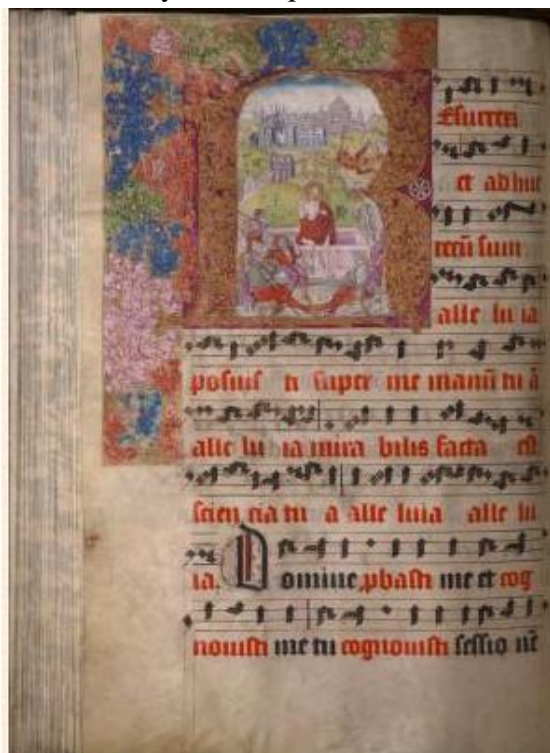 Esurrexi
et adhuc
tecū sum
alle lu ia
posuis ti super me manū tu ā
alle lu ia mira bilis facta est
scien cia tu a alle luia alle lu
ia. Domine ꝓbasti me et cog
nouisti me tu cognouisti sessio nē